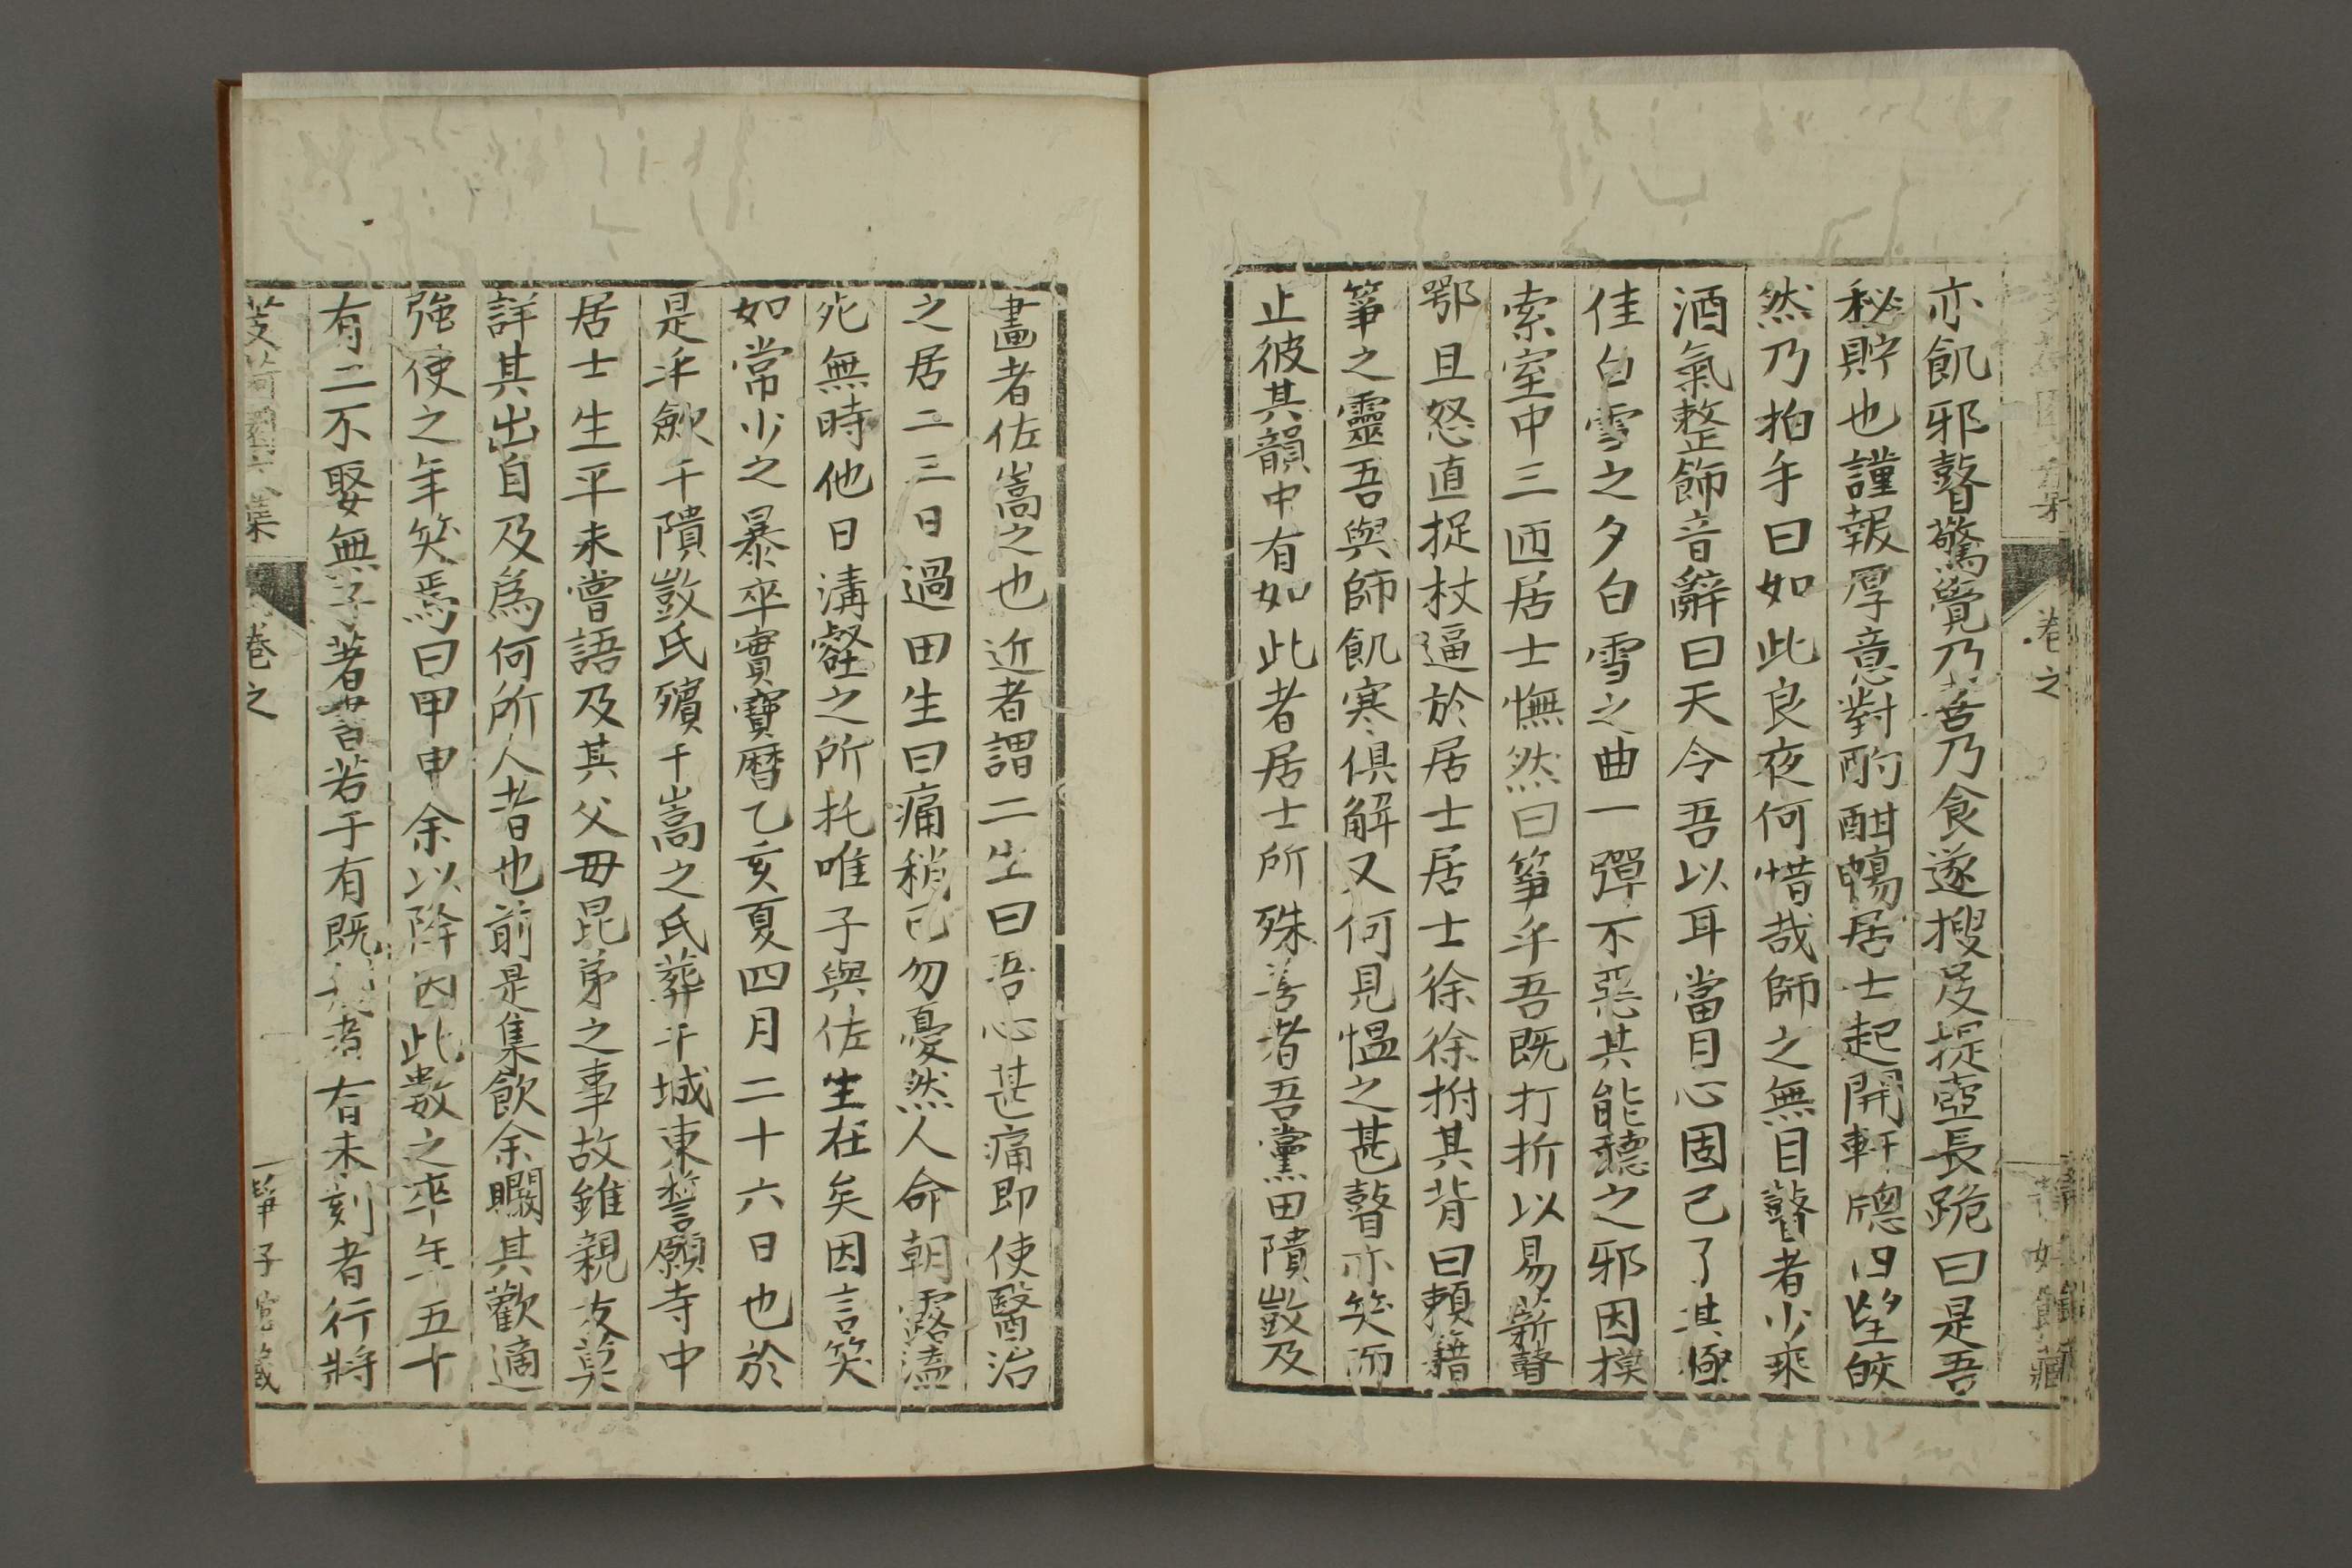 亦飢邪瞽驚覺乃喜乃食遂搜及捉壺長跪曰是吾
秘貯也謹報厚意對酌酣暢居士起開軒牕四望皎
然乃拍手曰如此良夜何惜哉師之無目瞽者少乘
酒氣整飾音辭曰天令吾以耳當目心固已了其極
佳白雪之夕白雪之曲一彈不惡其能聽之邪因摸
索室中三匝居士憮然曰箏乎吾既打折以易薪瞽
鄂且怒直捉杖逼於居士居士徐徐拊其背曰賴籍
箏之靈吾與師飢寒俱解又何見慍之甚瞽亦笑而
止彼其韻中有如此者居士所殊善者吾黨田隤敳及
畫者佐嵩之也近者謂二生曰吾心甚痛即使醫治
之居二三日過田生曰痛稍已勿憂然人命朝露溘
死無時他日溝壑之所托唯子與佐生在矣因言笑
如常少之暴卒實寶曆乙亥夏四月二十六日也於
是乎斂于隤敳氏殯于嵩之氏葬于城東誓願寺中
居士生平未嘗語及其父毋昆弟之事故雖親友莫
詳其出自及為何所人者也前是集飲余矙其歡適
強使之年笑焉曰甲申余以降因此数之卒年五十
有二不娶無子著書若干有既刻者有未刻者行將
卷之